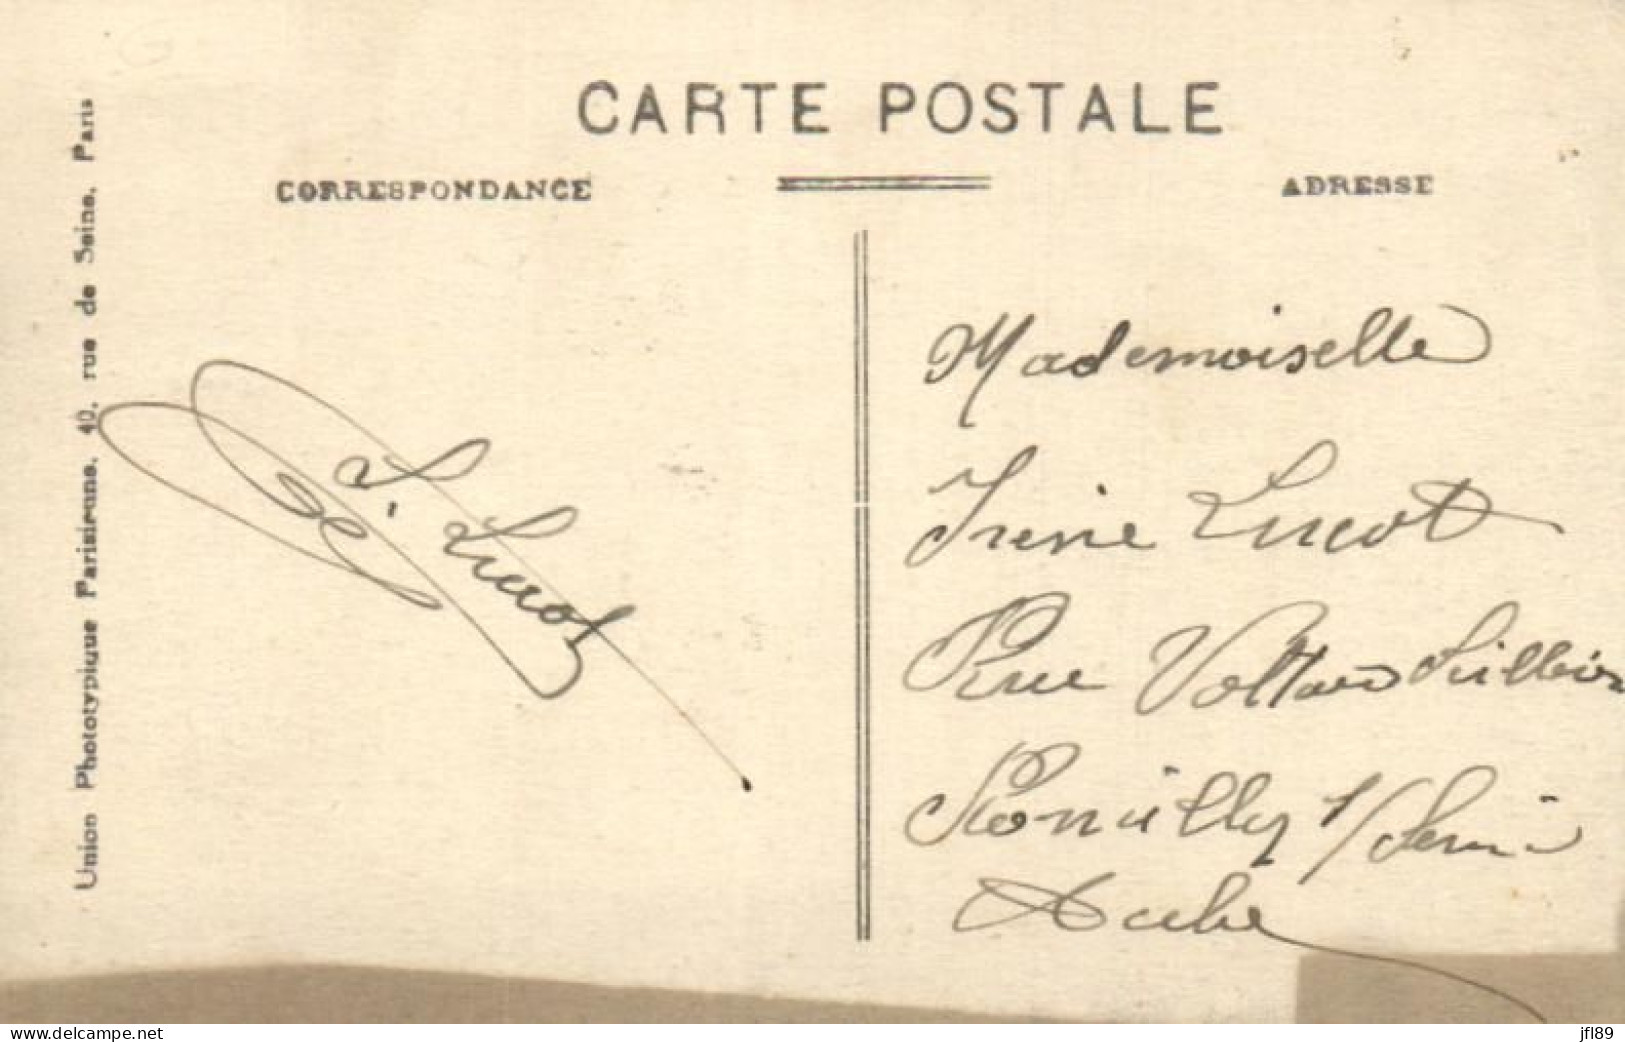 CARTE POSTALE
CORRESPONDANCE
ADRESSE
Union Phototypique Parisienne, 40, rue de Seine, Paris
Lucot
Mademoiselle
Irene Lucot
Rue Voltaire
Romilly s/ Seine
Aube
www.delcampe.net
jfl89